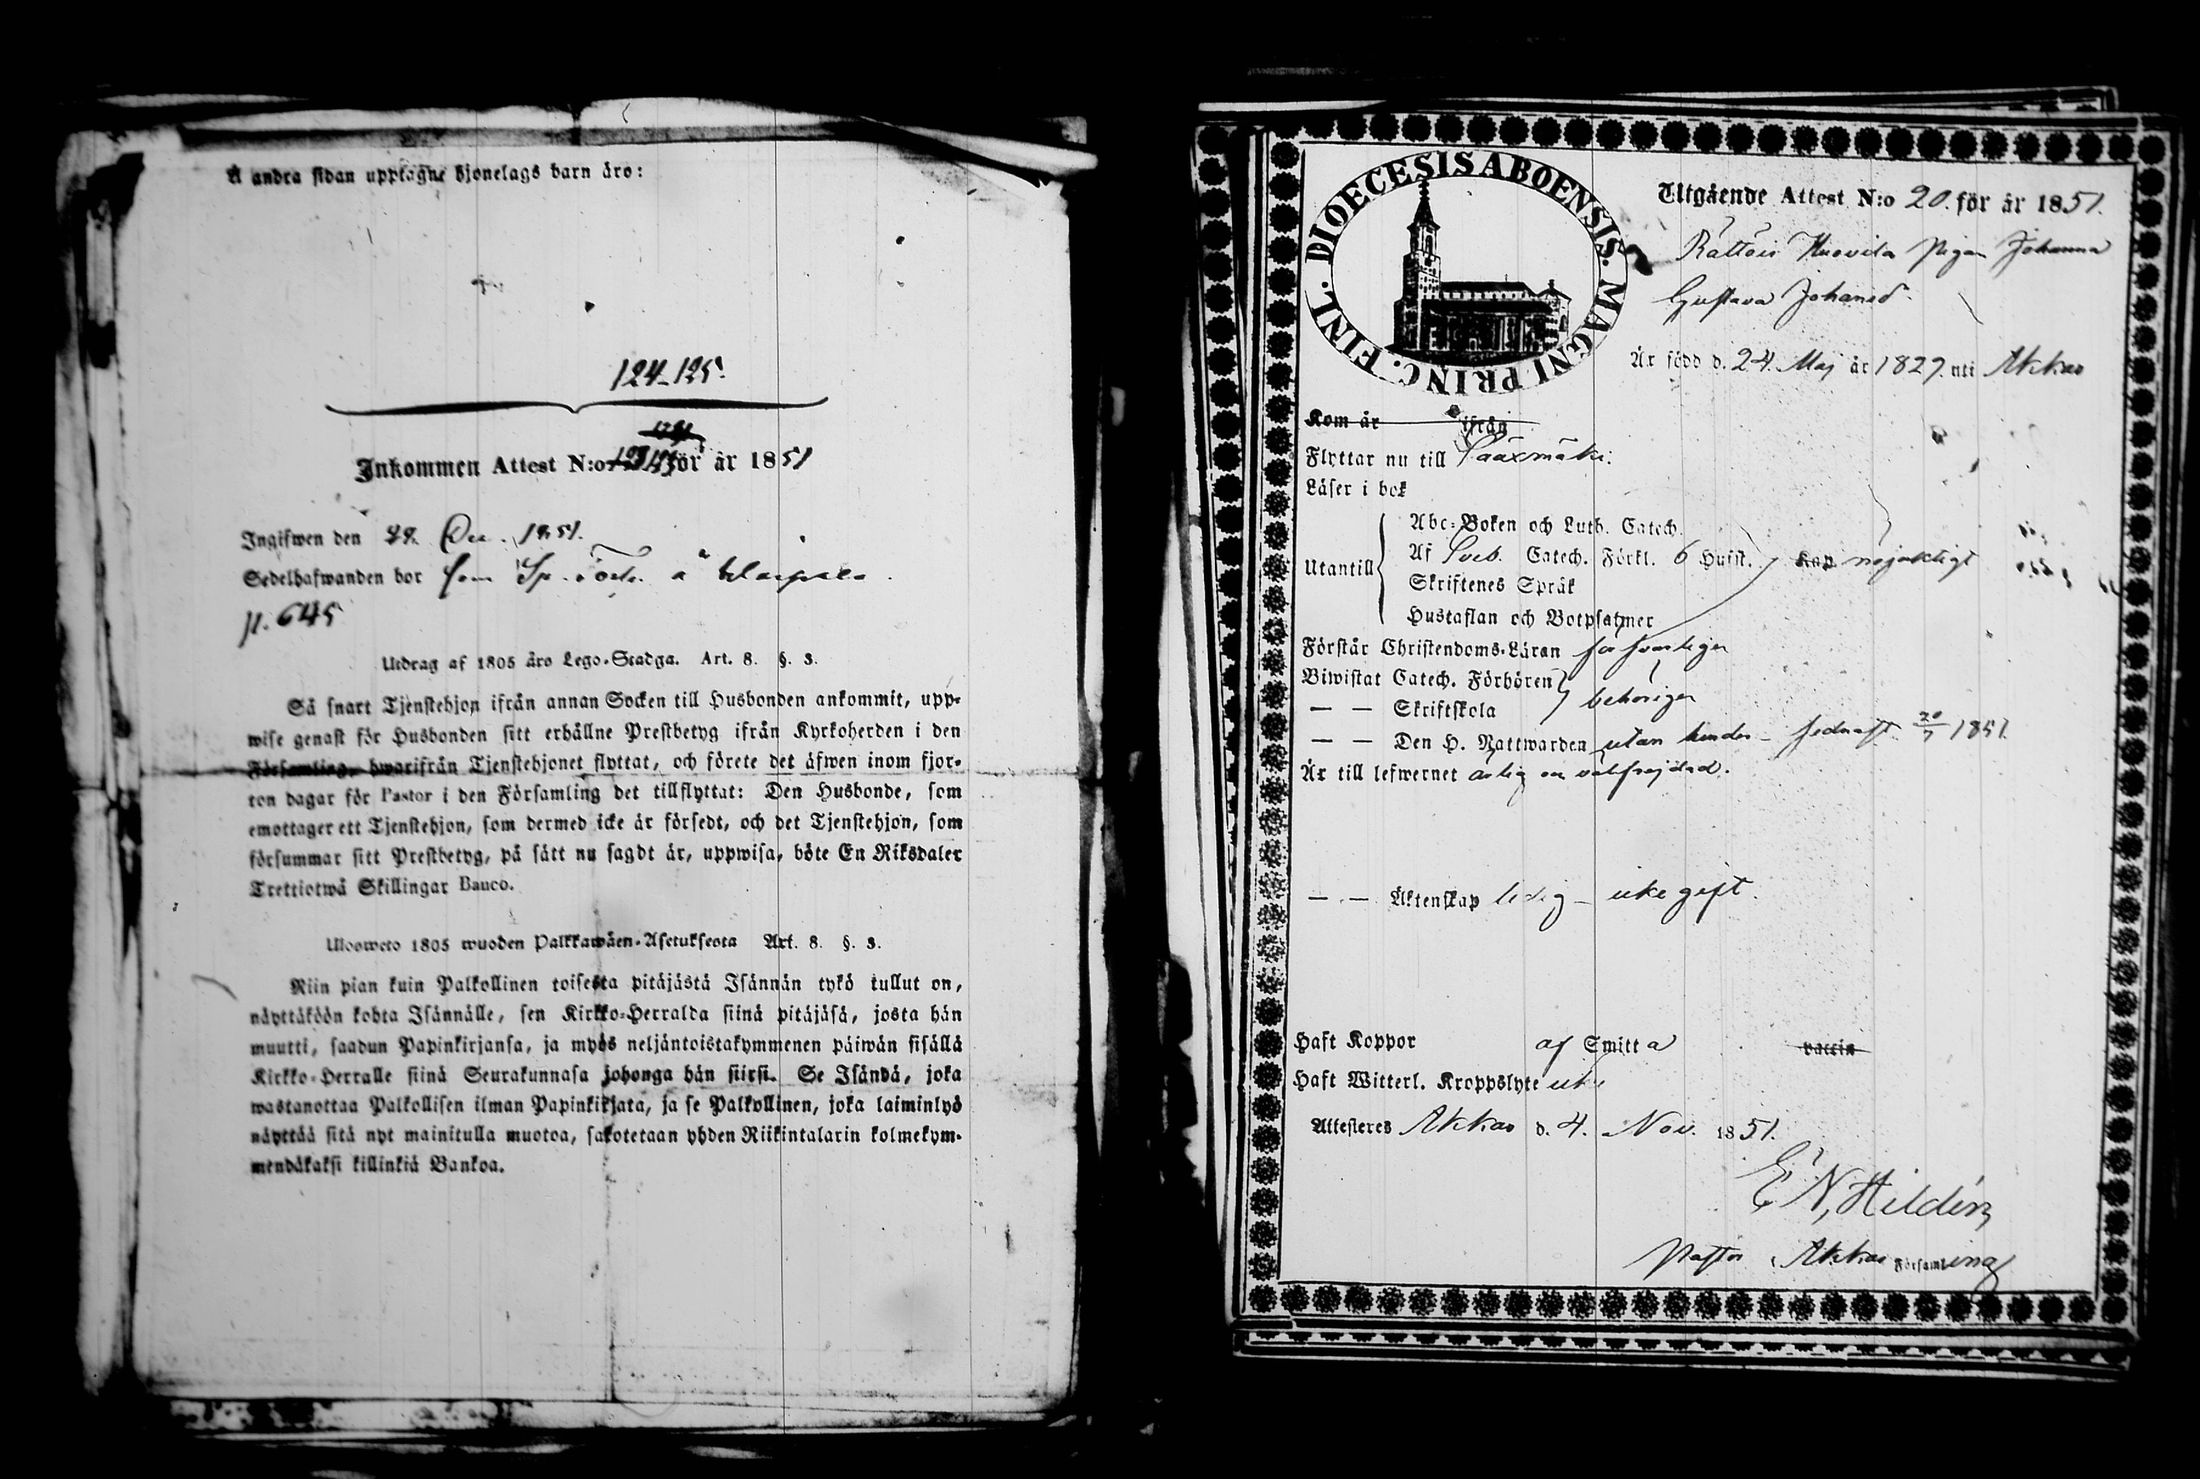 Å andra sidan upptagne hjonelags barn äro:
124-125.
Inkommen Attest N:o för år 1851
Ingifwen den 28. Dec. 1851.
Sedelhafwanden bor som
p. 645
Utdrag af 1805 års Lego-Stadga. Art. 8. §. 3.
Så snart Tjenstehjon ifrån annan Socken till Husbonden ankommit, upp-
wise genast för Husbonden sitt erhållne Prestbetyg ifrån Kyrkoherden i den
Församling, hwarifrån Tjenstehjonet flyttat, och förete det äfwen inom fjor-
ton dagar för Pastor i den Församling det tillflyttat: Den Husbonde, som
emottager ett Tjenstehjon, som dermed icke är försedt, och det Tjenstehjon, som
försummar sitt Prestbetyg, på sätt nu sagdt är, uppwisa, böte En Riksdaler
Trettiotwå Skillingar Banco.
Ulosweto 1805 wuoden Palkkawäen-Asetuksesta Art. 8. §. 3.
Niin pian kuin Palkollinen toisesta pitäjästä Isännän tykö tullut on,
näyttäköön kohta Isännälle, sen Kirkko-Herralda siinä pitäjäsä, josta hän
muutti, saadun Papinkirjansa, ja myös neljäntoistakymmenen päiwän sisällä
Kirkko-Herralle siinä Seurakunnasa johonga hän siirsi. Se Isändä, joka
wastanottaa Palkollisen ilman Papinkirjata, ja se Palkollinen, joka laiminlyö
näyttää sitä nyt mainitulla muotoa, sakotetaan yhden Riikintalarin kolmekym-
mendäkaksi killinkiä Bankoa.
DIOECESIS ABOENSIS. MAGNI PRINC. FINL.
Utgående Attest N:o 20. för år 1851.
Rättöis Huovila Pigan Johanna
Gustava Johansd.
Är född d. 24. Maj år 1827. uti Akkas
Kom år ifrån
Flyttar nu till Sääxmäki.
Läser i bok
Abc-Boken och Luth. Catech.
Utantill Af Sveb. Catech. Förkl. 6 Hufst. Kap nöjaktigt
Skriftenes Språk
Hustaflan och Botpsalmer
Förstår Christendoms-Läran försvarligen
Biwistat Catech. Förhören behörigen
— — Skriftskola
— — Den H. Nattwarden utan hinder sednast 20/7 1851.
Är till lefwernet ärlig och välfrejdad.
— — Äktenskap ledig – icke gift.
Haft Koppor af Smitta vaccin
Haft Witterl. Kroppslyte icke
Attesteres Akkas d. 4. Nov. 1851.
E N, Hildén
Pastor i Akkas Församling